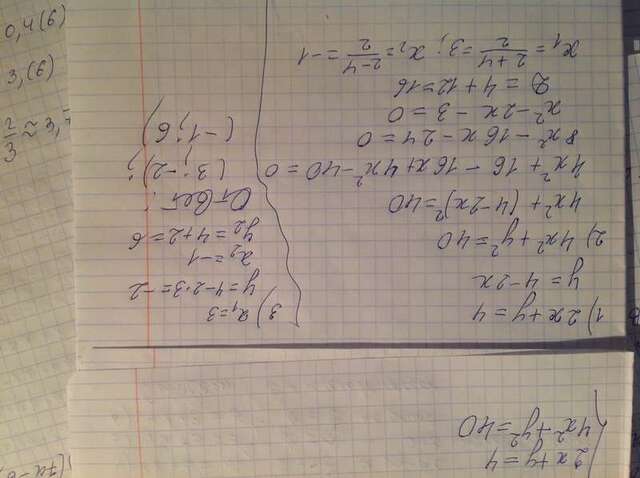 { 2x+y=4
4x²+y²=40
1) 2x+y=4
y=4-2x
2) 4x²+y²=40
4x²+(4-2x)²=40
4x²+16-16x+4x²-40=0
8x²-16x-24=0
x²-2x-3=0
D=4+12=16
x₁=(2+4)/2=3; x₂=(2-4)/2=-1
3) x₁=3
y=4-2·3=-2
x₂=-1
y₂=4+2=6
Ответ:
(3;-2);
(-1;6)
3,(6)
0,4(6)